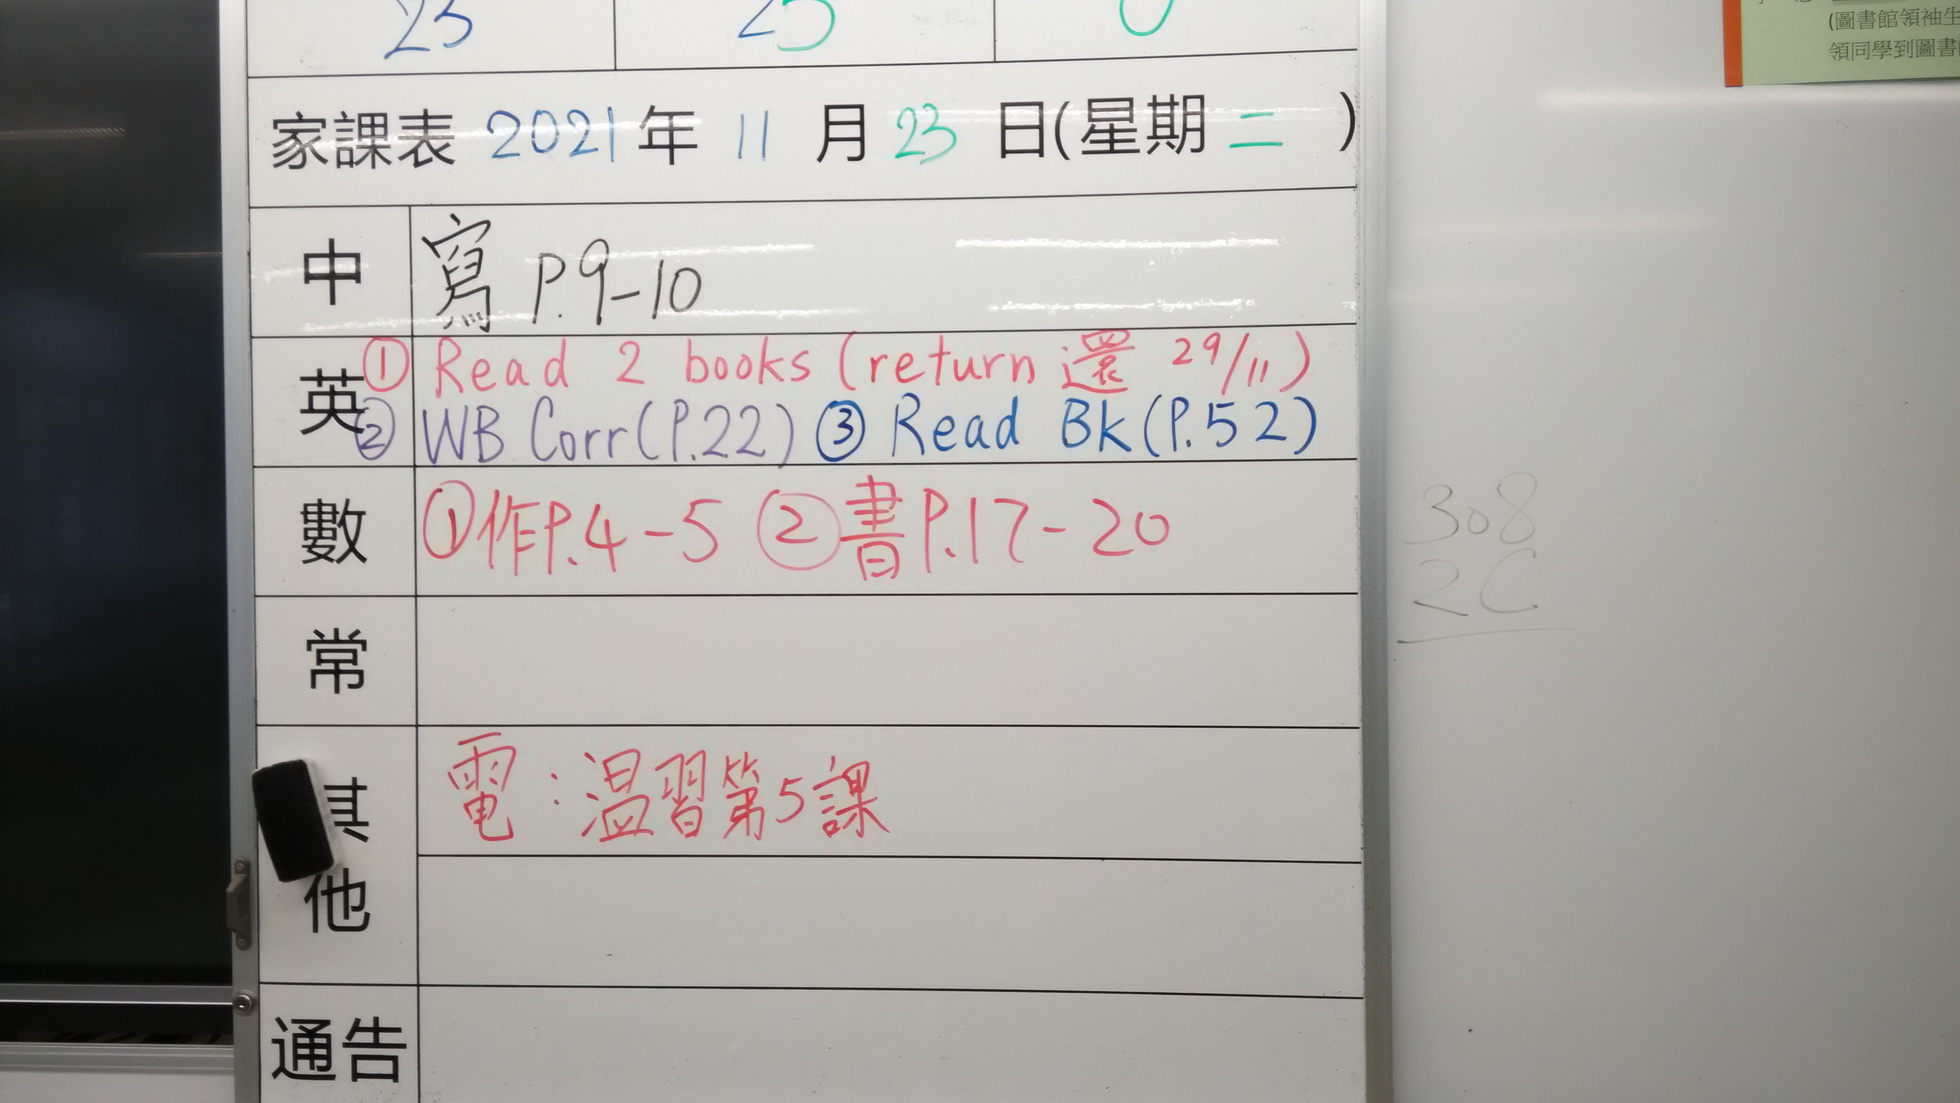 23 23 0
(圖書館領袖生
領同學到圖書
家課表 2021年 11 月 23 日(星期 二 )
中 寫 P.9-10
英 ① Read 2 books (return 還 29/11)
② WB Corr(P.22) ③ Read Bk(P.52)
數 ①作P.4-5 ②書P.17-20
308
2C
常
其他 電:温習第5課
通告